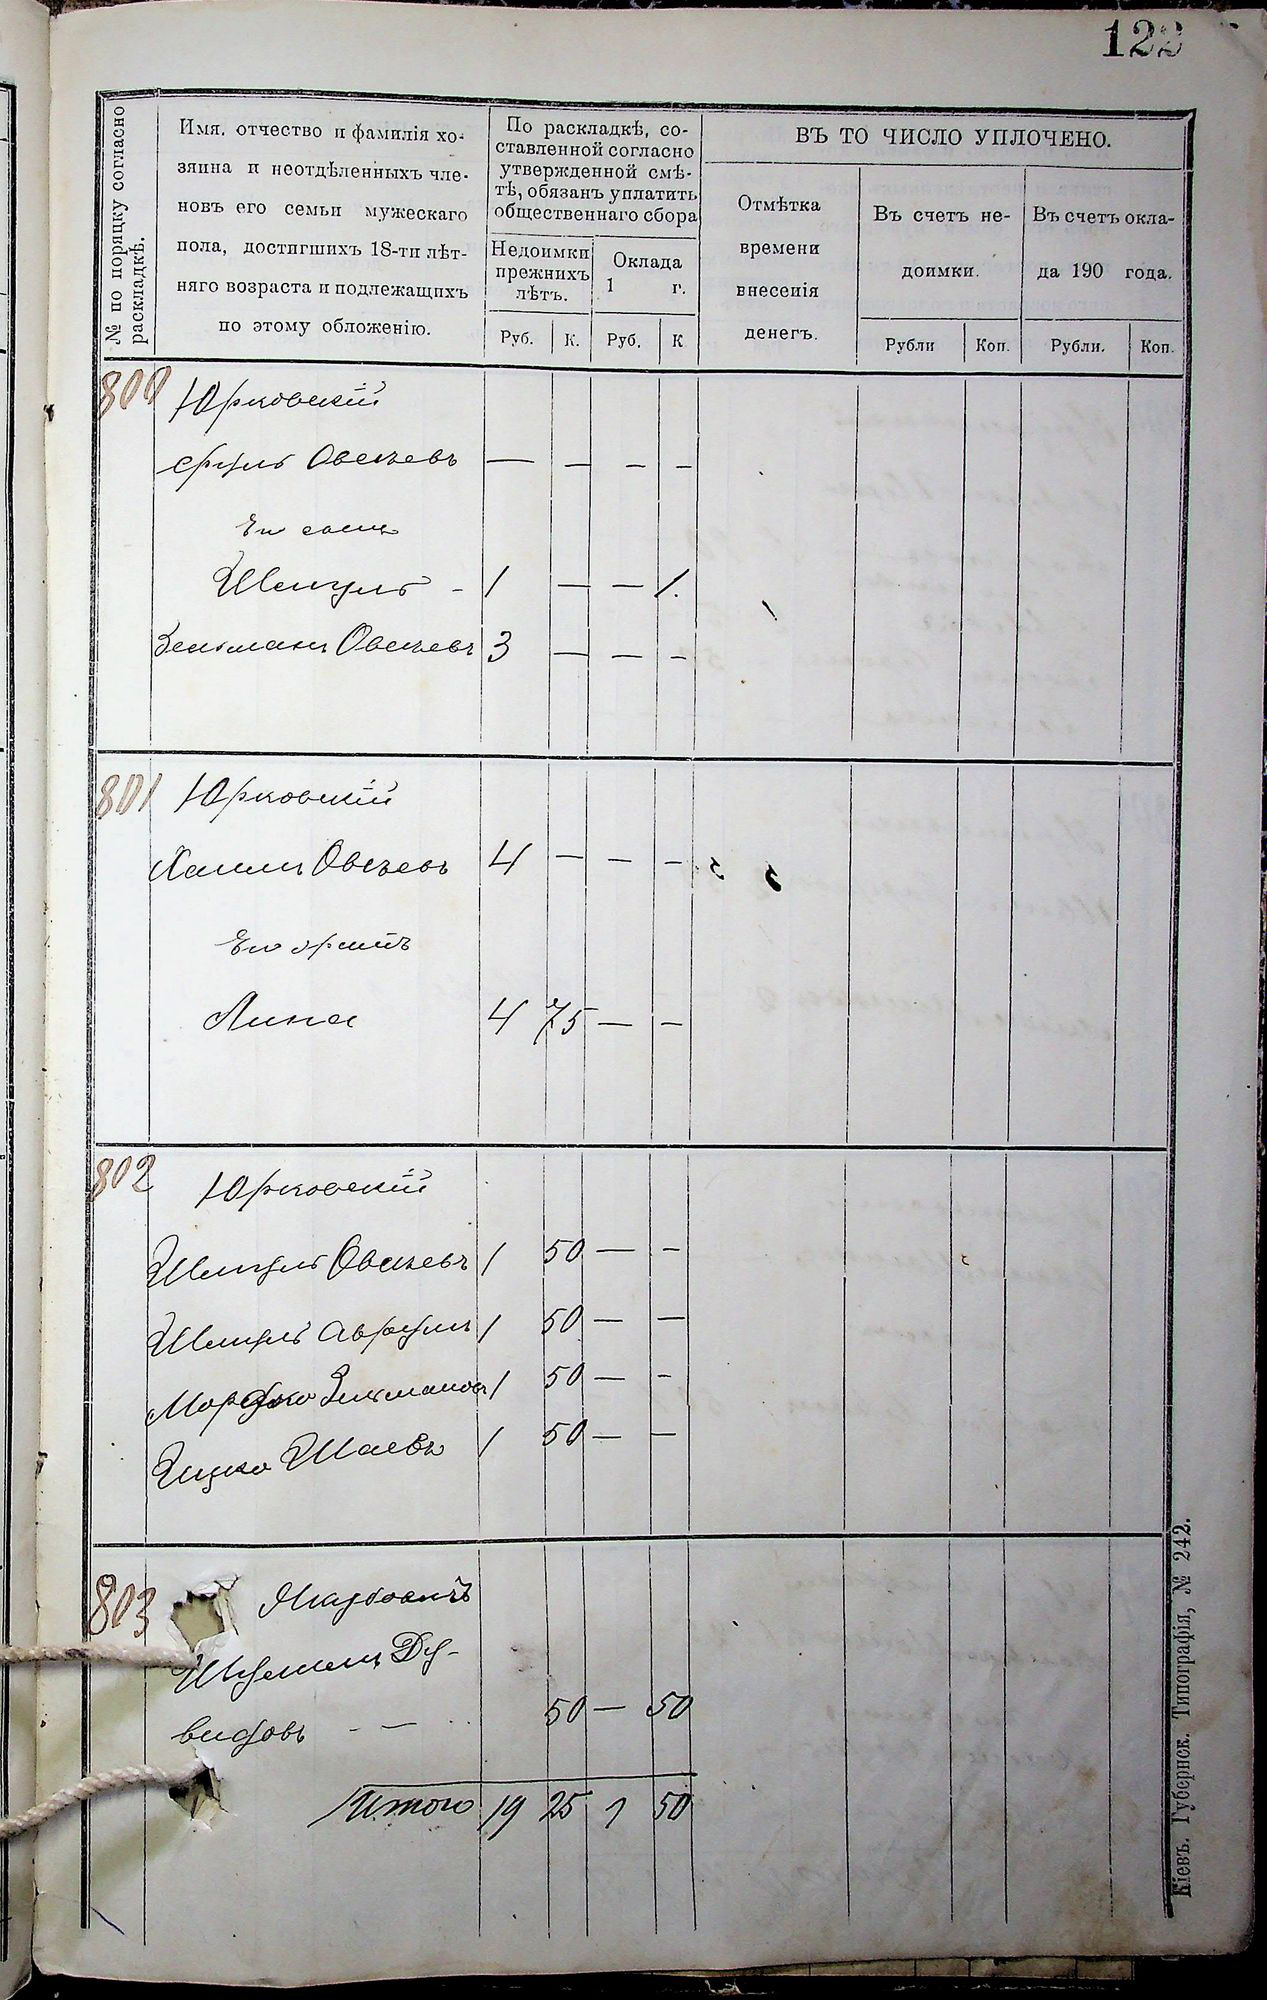 122
№ по поряцку согласно
раскладкѣ.
Имя, отчество и фамилія хо-
зяина и неотдѣленныхъ чле-
новъ его семьи мужескаго
пола, достигшихъ 18-ти лѣт-
няго возраста и подлежащихъ
по этому обложенію.
По раскладкѣ, со-
ставленной согласно
утвержденной смѣ-
тѣ, обязанъ уплатить
общественнаго сбора
Недоимки
прежнихъ
лѣтъ.
Оклада
1 г.
Руб. К. Руб. К
ВЪ ТО ЧИСЛО УПЛОЧЕНО.
Отмѣтка
времени
внесенія
денегъ.
Въ счетъ не-
доимки.
Въ счетъ окла-
да 190 года.
Рубли Коп. Рубли. Коп.
800 Юрковскій
Сруль Овсѣевъ — — — —
Его сынъ
Шмуль - 1 — — 1.
Зельманъ Овсѣевъ 3 — — -
801 Юрковскій
Хаимъ Овсѣевъ 4 — — -
Его
4 75 — -
802 Юрковскій
Шмуль Овсѣевъ 1 50 — -
Шмуль Аврумъ 1 50 — —
Мордко Зельмановъ 1 50 — -
Ицко Шаевъ 1 50 — —
803
Ду-
видовъ - — 50 — 50
Итого 19 25 1 50
Кіевъ. Губернск. Типографія, № 242.